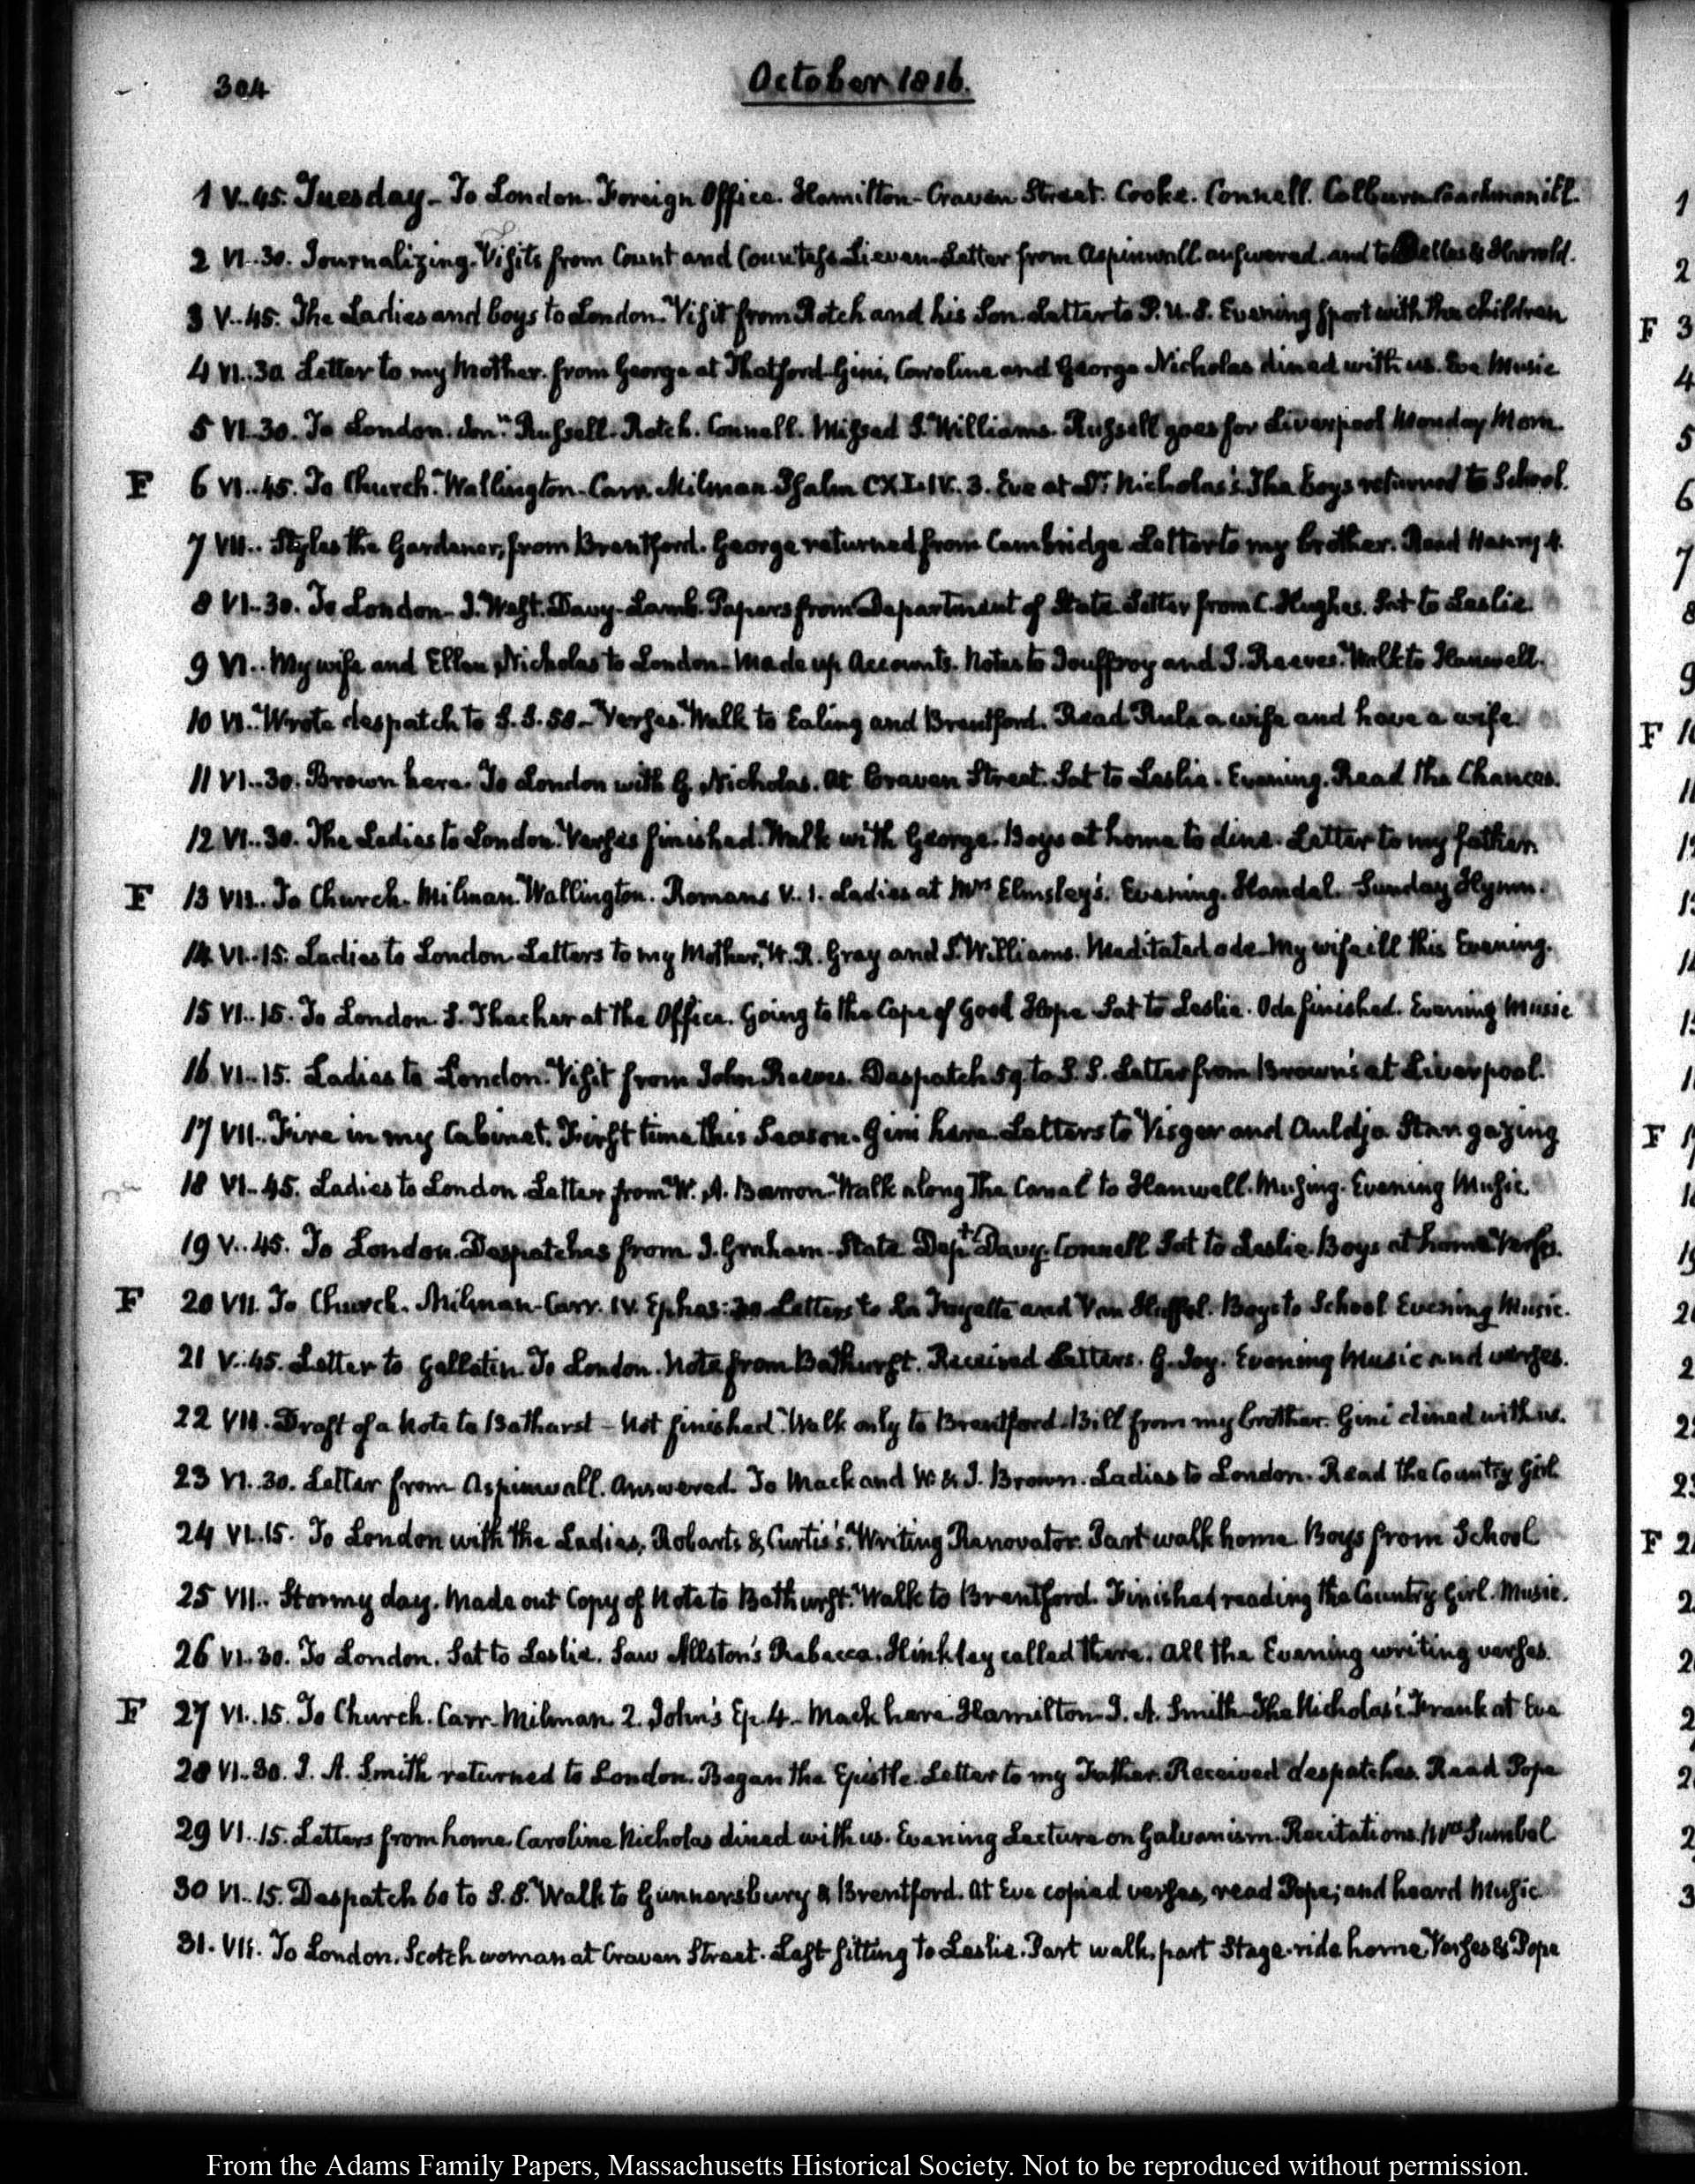 304
October 1816.
1 V..45. Tuesday - To London. Foreign Office. Hamilton - Craven Street. Cooke. Connell. Colburn. Coachman ill.
2 VI..30. Journalizing. Visits from Count and Countess Lieven. Letter from Aspinwall answered. and to & Harrold.
3 V..45. The Ladies and boys to London. Visit from Rotch and his Son. Letter to P. U.S. Evening sport with the children
4 VI..30 Letter to my Mother. from George at Thetford. Gini, Caroline and George Nicholas dined with us. Eve Music
5 VI..30. To London. Jonn. Russell. Rotch. Connell. Missed S. Williams. Russell goes for Liverpool Monday Morn.
F 6 VI..45. To Church. Wallington. Carr. Milman. Psalm CXLIV. 3. Eve at Dr. Nicholas's. The Boys returned to School.
7 VII.. Styles the Gardener, from Brentford. George returned from Cambridge. Letter to my brother. Read Henry 4.
8 VI..30. To London. J. West. Davy. Lamb. Papers from Department of State. Letter from C. Hughes. Sat to Leslie.
9 VI.. My wife and Ellen Nicholas to London. Made up Accounts. Notes to Jouffroy and J. Reeves. Walk to Hanwell.
10 VI.. Wrote despatch to S. S. 58 - Verses. Walk to Ealing and Brentford. Read Rule a wife and have a wife.
11 VI..30. Brown here. To London with G. Nicholas. At Craven Street. Sat to Leslie. Evening. Read the Chances.
12 VI..30. The Ladies to London. Verses finished. Walk with George. Boys at home to dine. Letter to my father.
F 13 VII.. To Church. Milman. Wallington. Romans V. 1. Ladies at Mrs Elmsley's. Evening. Handel. Sunday Hymn.
14 VI..15. Ladies to London. Letters to my Mother, W. R. Gray and S. Williams. Meditated ode. My wife ill this Evening.
15 VI..15. To London. S. Thacher at the Office. Going to the Cape of Good Hope. Sat to Leslie. Ode finished. Evening Music
16 VI..15. Ladies to London. Visit from John Reeves. Despatch 59. to S. S. Letter from Brown's at Liverpool.
17 VII.. Fire in my Cabinet. First time this Season. Gini here. Letters to Visger and Auldjo. Star gazing
18 VI..45. Ladies to London. Letter from W. A. Barron. Walk along the Canal to Hanwell. Musing. Evening Music.
19 V..45. To London. Despatches from J. Graham. State Dept. Davy. Connell. Sat to Leslie. Boys at home. Verses.
F 20 VII. To Church. Milman - Carr. IV. Ephes: 30. Letters to La Fayette and Van Huffel. Boys to School. Evening Music.
21 V..45. Letter to Gallatin. To London. Note from Bathurst. Received Letters. G. Joy. Evening Music and verses.
22 VII. Draft of a Note to Bathurst - Not finished. Walk only to Brentford. Bill from my brother. Gini dined with us.
23 VI..30. Letter from Aspinwall. Answered. To Mack and W. & J. Brown. Ladies to London. Read the Country Girl
24 VI..15. To London with the Ladies, Robarts & Curtis's. Writing Renovator. Part walk home. Boys from School
25 VII.. Stormy day. Made out Copy of Note to Bathurst. Walk to Brentford. Finished reading the Country Girl. Music.
26 VI..30. To London. Sat to Leslie. Saw Allston's Rebecca. Hinkley called there. All the Evening writing verses.
F 27 VI..15. To Church. Carr. Milman. 2. John's Ep. 4. Mack here. Hamilton. J. A. Smith. The Nicholas's. Frank at Eve
28 VI..30. J. A. Smith returned to London. Began the Epistle. Letter to my Father. Received despatches. Read Pope
29 VI..15. Letters from home. Caroline Nicholas dined with us. Evening Lecture on Galvanism. Recitations. Mrs Sumbel
30 VI..15. Despatch 60 to S. S. Walk to Gunnersbury & Brentford. At Eve copied verses, read Pope; and heard Music
31. VII. To London. Scotch woman at Craven Street. Last sitting to Leslie. Part walk, part Stage-ride home. Verses & Pope
From the Adams Family Papers, Massachusetts Historical Society. Not to be reproduced without permission.